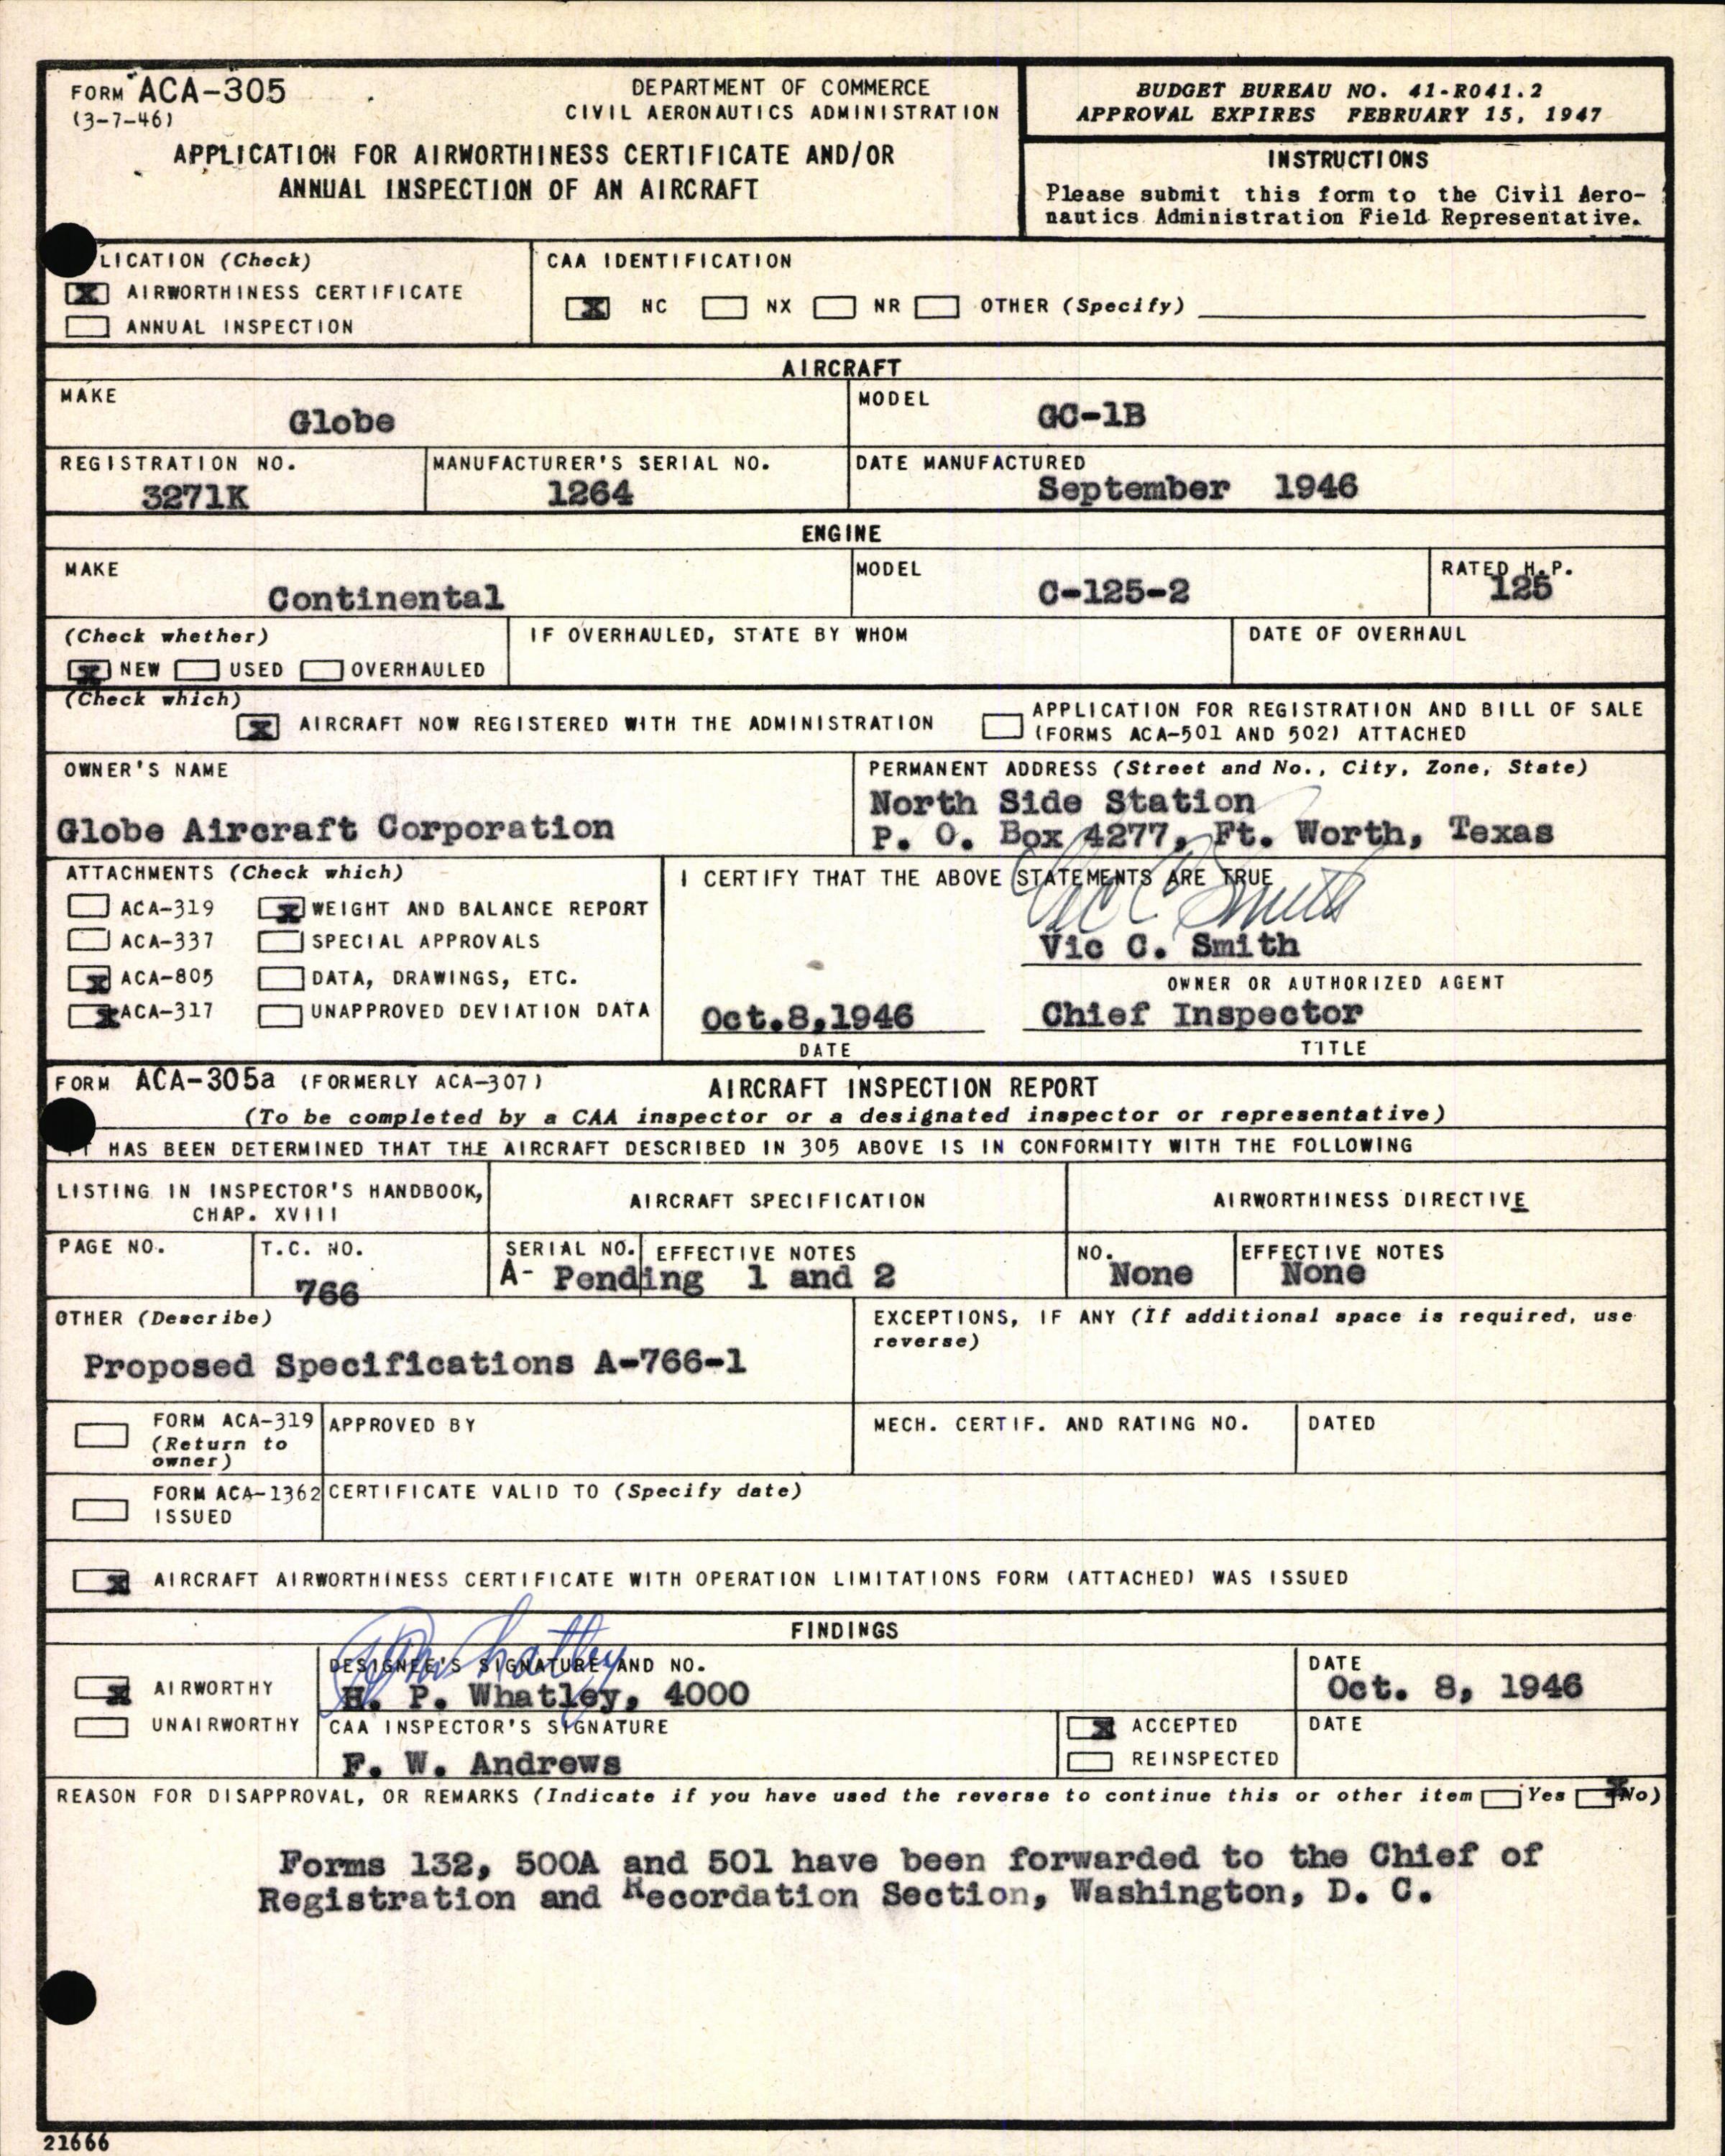 FORM ACA-305
(3-7-46)
DEPARTMENT OF COMMERCE
CIVIL AERONAUTICS ADMINISTRATION
APPLICATION FOR AIRWORTHINESS CERTIFICATE AND/OR
ANNUAL INSPECTION OF AN AIRCRAFT
BUDGET BUREAU NO. 41-R041.2
APPROVAL EXPIRES FEBRUARY 15, 1947
INSTRUCTIONS
Please submit this form to the Civil Aero-
nautics Administration Field Representative.
LICATION (Check)
X AIRWORTHINESS CERTIFICATE
ANNUAL INSPECTION
CAA IDENTIFICATION
X NC NX NR OTHER (Specify)
AIRCRAFT
MAKE
Globe
MODEL
GC-1B
REGISTRATION NO.
3271K
MANUFACTURER'S SERIAL NO.
1264
DATE MANUFACTURED
September 1946
ENGINE
MAKE
Continental
MODEL
C-125-2
RATED H.P.
125
(Check whether)
X NEW USED OVERHAULED
IF OVERHAULED, STATE BY WHOM
DATE OF OVERHAUL
(Check which)
X AIRCRAFT NOW REGISTERED WITH THE ADMINISTRATION
APPLICATION FOR REGISTRATION AND BILL OF SALE
(FORMS ACA-501 AND 502) ATTACHED
OWNER'S NAME
Globe Aircraft Corporation
PERMANENT ADDRESS (Street and No., City, Zone, State)
North Side Station
P. O. Box 4277, Ft. Worth, Texas
ATTACHMENTS (Check which)
ACA-319 X WEIGHT AND BALANCE REPORT
ACA-337 SPECIAL APPROVALS
X ACA-805 DATA, DRAWINGS, ETC.
X ACA-317 UNAPPROVED DEVIATION DATA
I CERTIFY THAT THE ABOVE STATEMENTS ARE TRUE
Vic C Smith
Vic C. Smith
OWNER OR AUTHORIZED AGENT
Oct.8,1946
DATE
Chief Inspector
TITLE
FORM ACA-305a (FORMERLY ACA-307)
AIRCRAFT INSPECTION REPORT
(To be completed by a CAA inspector or a designated inspector or representative)
IT HAS BEEN DETERMINED THAT THE AIRCRAFT DESCRIBED IN 305 ABOVE IS IN CONFORMITY WITH THE FOLLOWING
LISTING IN INSPECTOR'S HANDBOOK,
CHAP. XVIII
AIRCRAFT SPECIFICATION
AIRWORTHINESS DIRECTIVE
PAGE NO.
T.C. NO.
766
SERIAL NO. EFFECTIVE NOTES
A- Pending 1 and 2
NO.
None
EFFECTIVE NOTES
None
OTHER (Describe)
Proposed Specifications A-766-1
EXCEPTIONS, IF ANY (If additional space is required, use
reverse)
FORM ACA-319
(Return to
owner)
APPROVED BY
MECH. CERTIF. AND RATING NO.
DATED
FORM ACA-1362
ISSUED
CERTIFICATE VALID TO (Specify date)
X AIRCRAFT AIRWORTHINESS CERTIFICATE WITH OPERATION LIMITATIONS FORM (ATTACHED) WAS ISSUED
FINDINGS
X AIRWORTHY
UNAIRWORTHY
DESIGNEE'S SIGNATURE AND NO.
H. P. Whatley, 4000
DATE
Oct. 8, 1946
CAA INSPECTOR'S SIGNATURE
F. W. Andrews
X ACCEPTED
REINSPECTED
DATE
REASON FOR DISAPPROVAL, OR REMARKS (Indicate if you have used the reverse to continue this or other item Yes X No)
Forms 132, 500A and 501 have been forwarded to the Chief of
Registration and Recordation Section, Washington, D. C.
21666